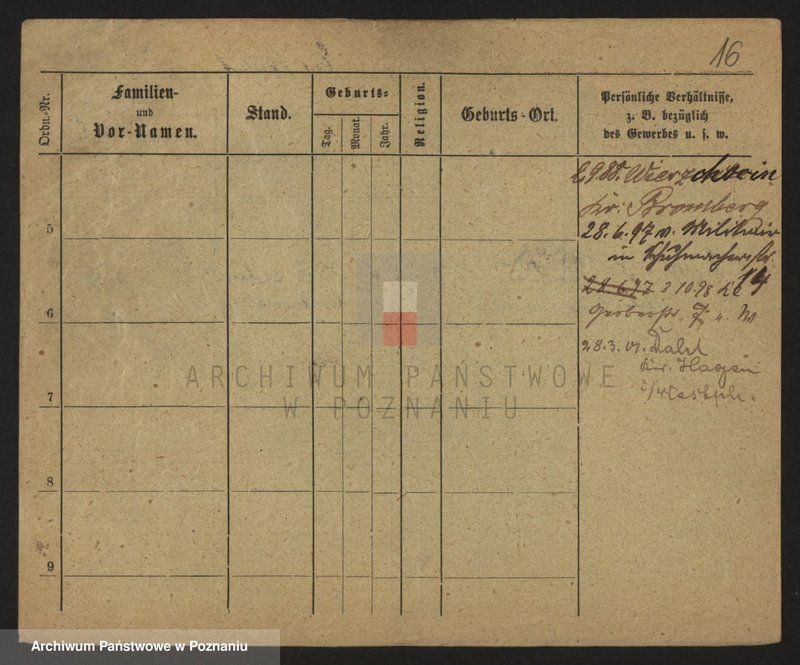 16
Ordn.-Nr.
Familien-
und
Vor-Namen.
Stand.
Geburts-
Tag.
Monat.
Jahr.
Religion.
Geburts-Ort.
Persönliche Verhältnisse,
z. B. bezüglich
des Gewerbes u. s. w.
Kr: Bromberg
28.6.97 v. Militair
in Schuhmacherstr.
5
28.6.97 3 10.98
14
6
Gerberstr. 7
28.3.01.
Kr. Hagen
i/Westph.
7
8
9
ARCHIWUM PAŃSTWOWE
W POZNANIU
Archiwum Państwowe w Poznaniu